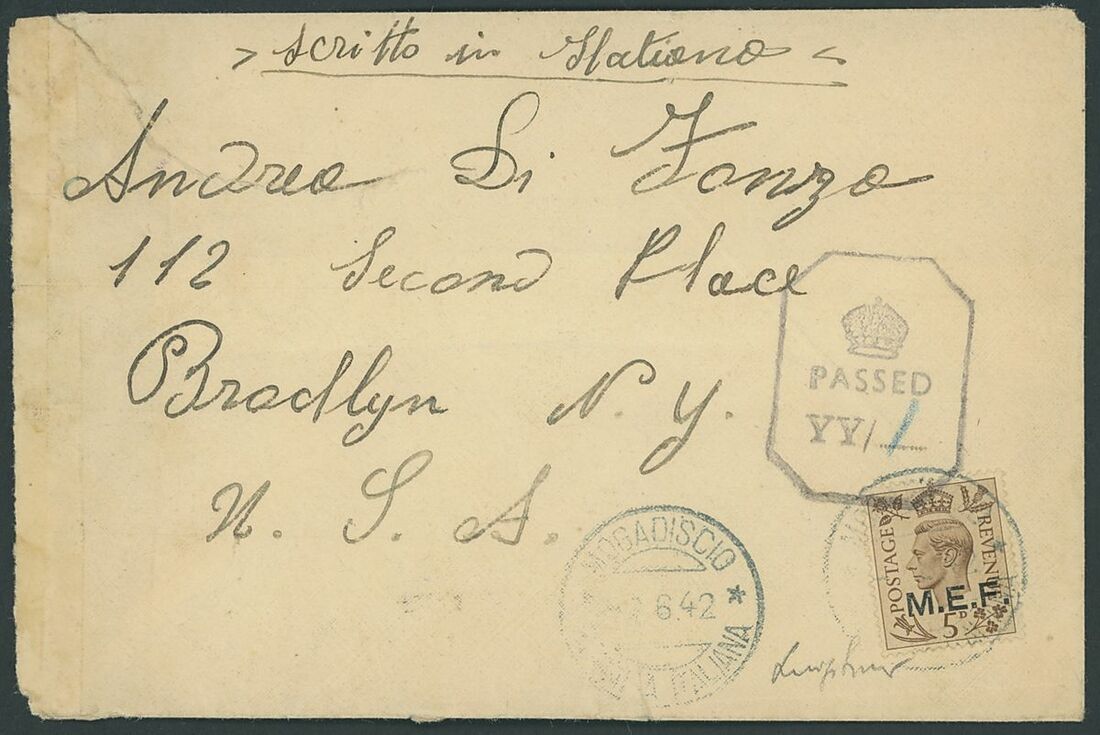 > scritto in Italiano <
Andrea Di Fonzo
112 Second Place
Brodlyn N. Y.
U. S. A.
PASSED
YY/1
MOGADISCIO
6 42 *
ITALIANA
POSTAGE REVENUE
M.E.F.
5D